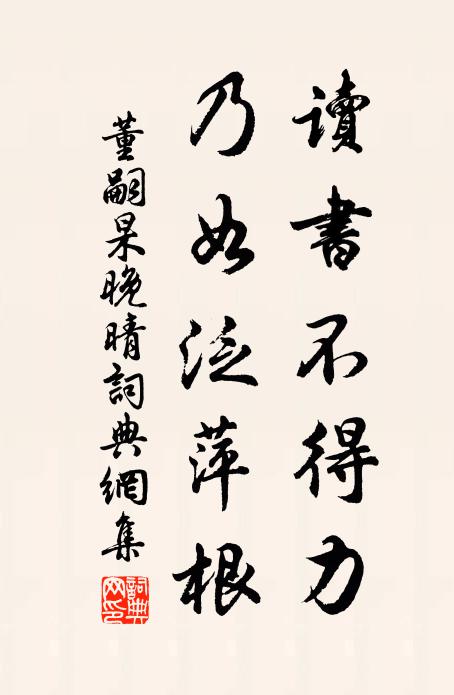 讀書不得力
乃如泛萍根
董嗣杲晚晴詞典網集
詞典網印